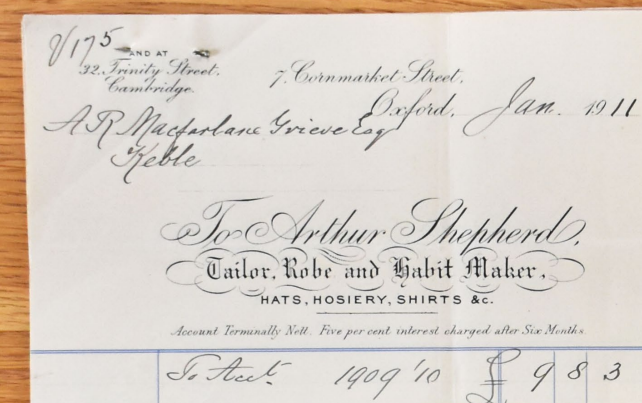 V/175
AND AT
32. Trinity Street.
Cambridge.
7. Cornmarket Street,
Oxford, Jan. 1911
A R Macfarlane Grieve Esq
Keble
To Arthur Shepherd,
Tailor, Robe and Habit Maker,
HATS, HOSIERY, SHIRTS &c.
Account Terminally Nett. Five per cent interest charged after Six Months.
To Acct. 1909 '10 £ 9 8 3